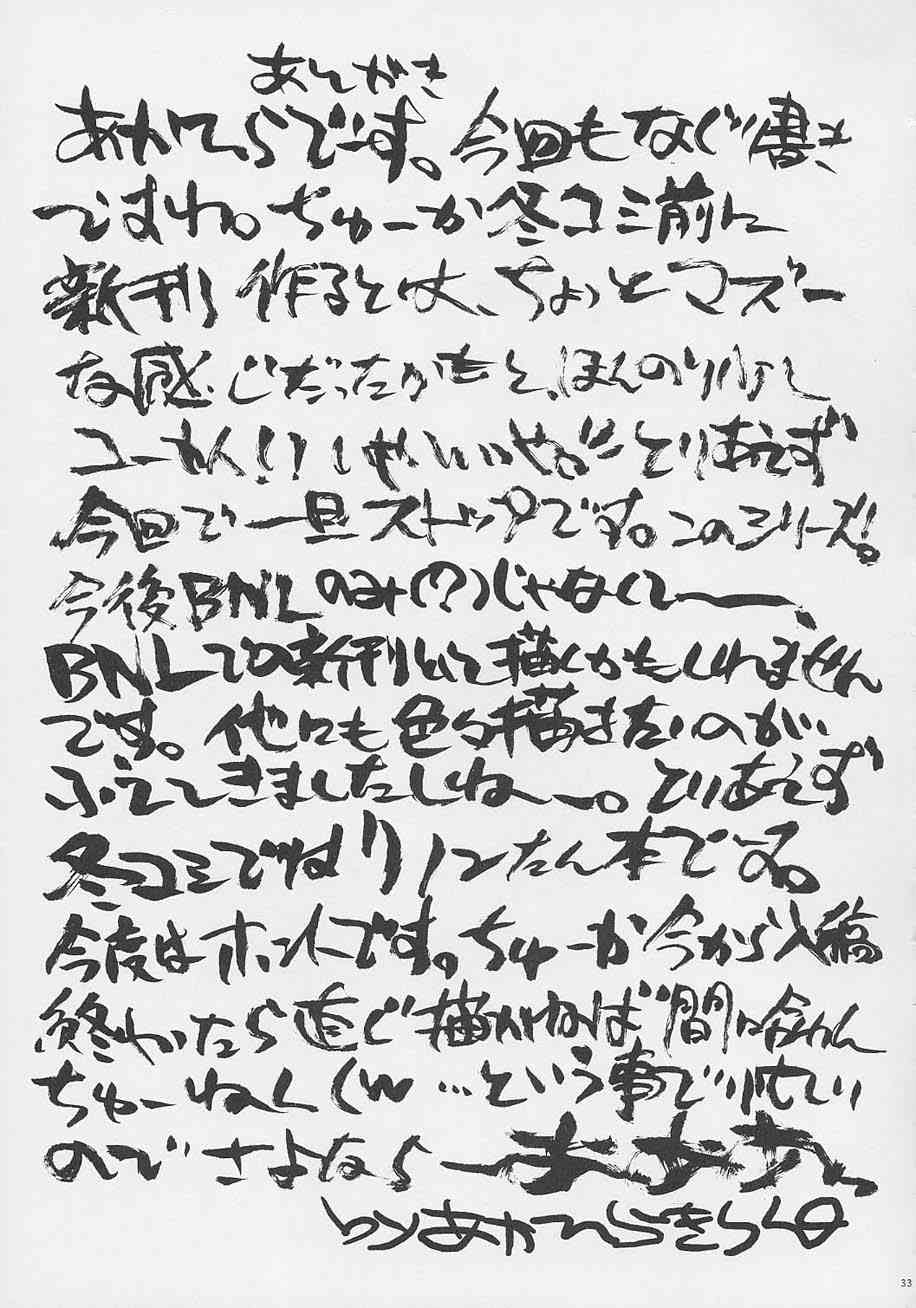 あとがき
あかてらです。今回もなぐり書き
ですね。ちゅーか冬コミ前に
新刊作るとは、ちょっとマズー
な感じだったかもと、ほんのり
今回で一旦ストップです。このシリーズ!。
今後BNLのみ(?)じゃなくて――、
BNLでの新刊として描くかもしれません
です。他にも色々描きたいのが…
ふえてきましたしねー。とりあえず
冬コミではリノンたん本でする。
今度はホントです。ちゅーか今から入稿
終わったら直ぐ描かねば間に合わん
ちゅーねん(w …という事で忙しい
のでさよなら――まああ
33